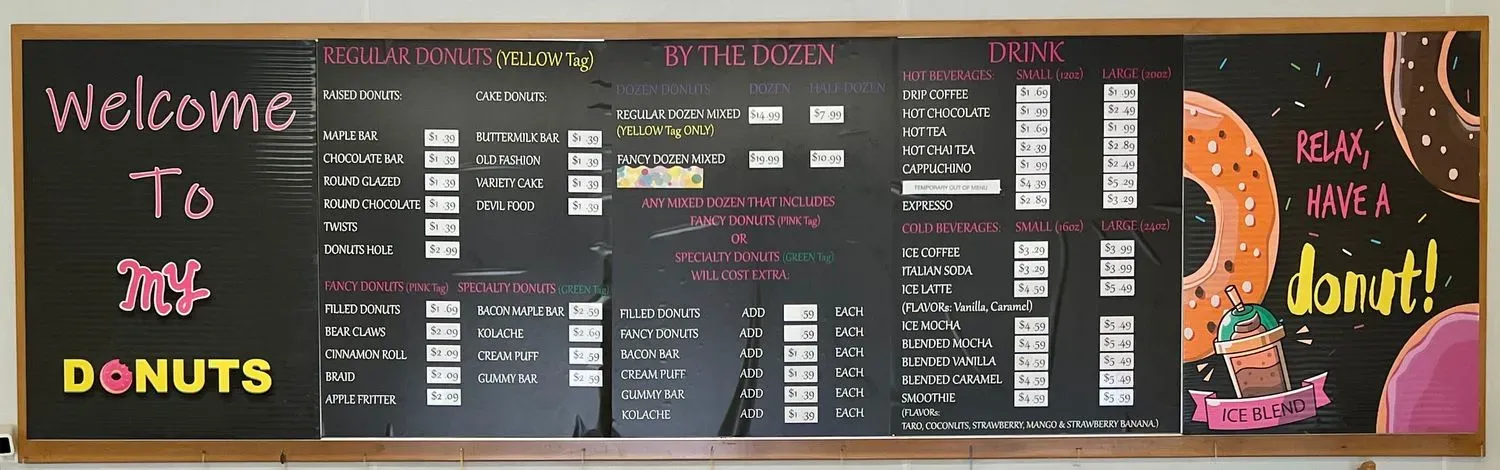 Welcome
To
my
DONUTS
REGULAR DONUTS (YELLOW Tag)
RAISED DONUTS: CAKE DONUTS:
MAPLE BAR $1.39 BUTTERMILK BAR $1.39
CHOCOLATE BAR $1.39 OLD FASHION $1.39
ROUND GLAZED $1.39 VARIETY CAKE $1.39
ROUND CHOCOLATE $1.39 DEVIL FOOD $1.39
TWISTS $1.39
DONUTS HOLE $2.99
FANCY DONUTS (PINK Tag) SPECIALTY DONUTS (GREEN Tag)
FILLED DONUTS $1.69 BACON MAPLE BAR $2.59
BEAR CLAWS $2.09 KOLACHE $2.69
CINNAMON ROLL $2.09 CREAM PUFF $2.59
BRAID $2.09 GUMMY BAR $2.59
APPLE FRITTER $2.09
BY THE DOZEN
DOZEN DONUTS DOZEN HALF DOZEN
REGULAR DOZEN MIXED $14.99 $7.99
(YELLOW Tag ONLY)
FANCY DOZEN MIXED $19.99 $10.99
ANY MIXED DOZEN THAT INCLUDES
FANCY DONUTS (PINK Tag)
OR
SPECIALTY DONUTS (GREEN Tag)
WILL COST EXTRA:
FILLED DONUTS ADD .59 EACH
FANCY DONUTS ADD .59 EACH
BACON BAR ADD $1.39 EACH
CREAM PUFF ADD $1.39 EACH
GUMMY BAR ADD $1.39 EACH
KOLACHE ADD $1.39 EACH
DRINK
HOT BEVERAGES: SMALL (12oz) LARGE (20oz)
DRIP COFFEE $1.69 $1.99
HOT CHOCOLATE $1.99 $2.49
HOT TEA $1.69 $1.99
HOT CHAI TEA $2.39 $2.89
CAPPUCHINO $1.99 $2.49
TEMPORARY OUT OF MENU $4.39 $5.29
EXPRESSO $2.89 $3.29
COLD BEVERAGES: SMALL (16oz) LARGE (24oz)
ICE COFFEE $3.29 $3.99
ITALIAN SODA $3.29 $3.99
ICE LATTE $4.59 $5.49
(FLAVORs: Vanilla, Caramel)
ICE MOCHA $4.59 $5.49
BLENDED MOCHA $4.59 $5.49
BLENDED VANILLA $4.59 $5.49
BLENDED CARAMEL $4.59 $5.49
SMOOTHIE $4.59 $5.59
(FLAVORs:
TARO, COCONUTS, STRAWBERRY, MANGO & STRAWBERRY BANANA.)
RELAX,
HAVE A
donut!
ICE BLEND